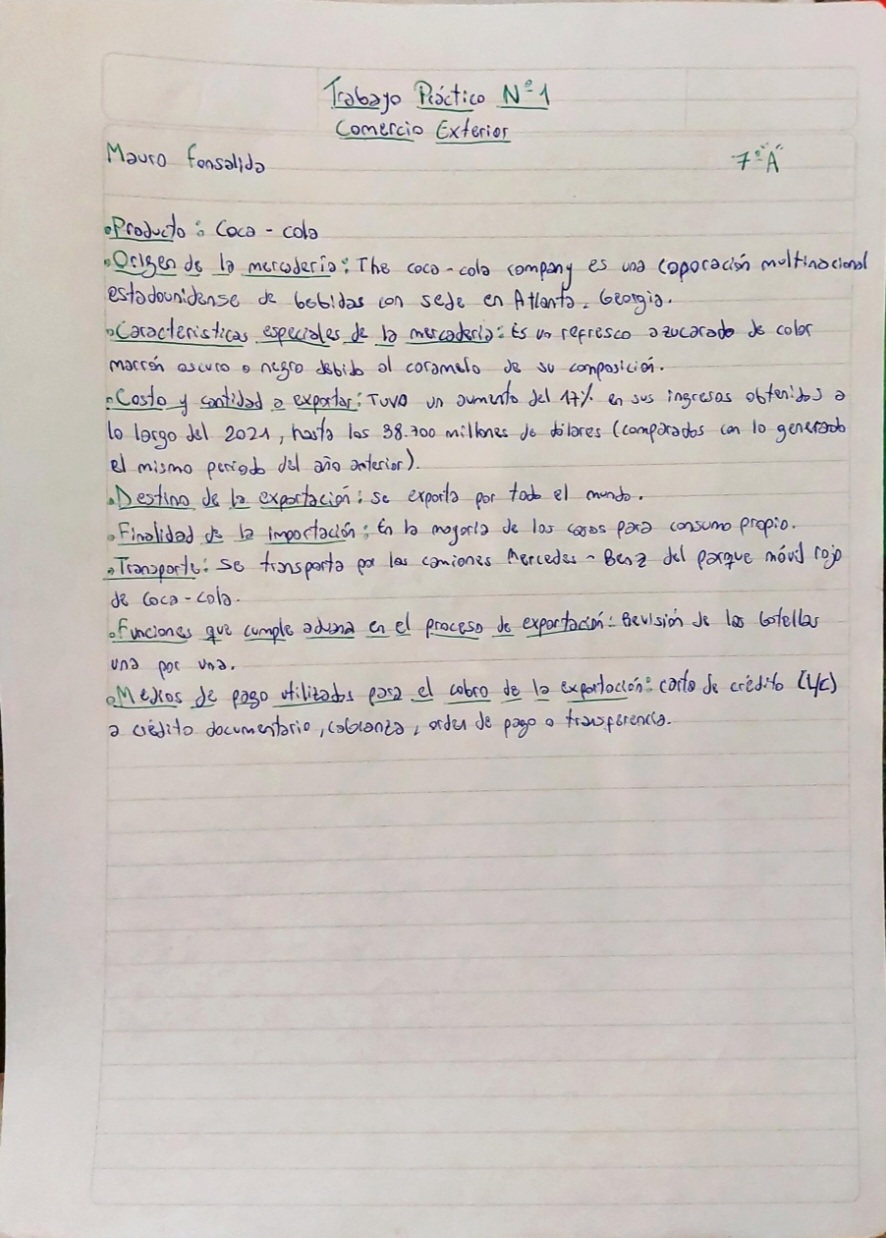 Trabajo Práctico Nº1
Comercio Exterior
Mauro Fonsalida
7º"A"
•Producto: Coca-cola
•Origen de la mercadería: The coca-cola company es una coporación multinacional
estadounidense de bebidas con sede en Atlanta, Georgia.
•Características especiales de la mercadería: Es un refresco azucarado de color
marrón oscuro o negro debido al caramelo de su composición.
•Costo y cantidad a exportar: Tuvo un aumento del 17% en sus ingresos obtenidos a
lo largo del 2021, hasta los 38.700 millones de dólares (comparados con lo generado
el mismo periodo del año anterior).
•Destino de la exportación: se exporta por todo el mundo.
•Finalidad de la importación: En la mayoría de los casos para consumo propio.
•Transporte: Se transporta por los camiones Mercedes-Benz del parque móvil rojo
de Coca-cola.
•Funciones que cumple aduana en el proceso de exportación: Revisión de las botellas
una por una.
•Medios de pago utilizados para el cobro de la exportación: carta de crédito (L/c)
a crédito documentario, cobranza, orden de pago o transferencia.